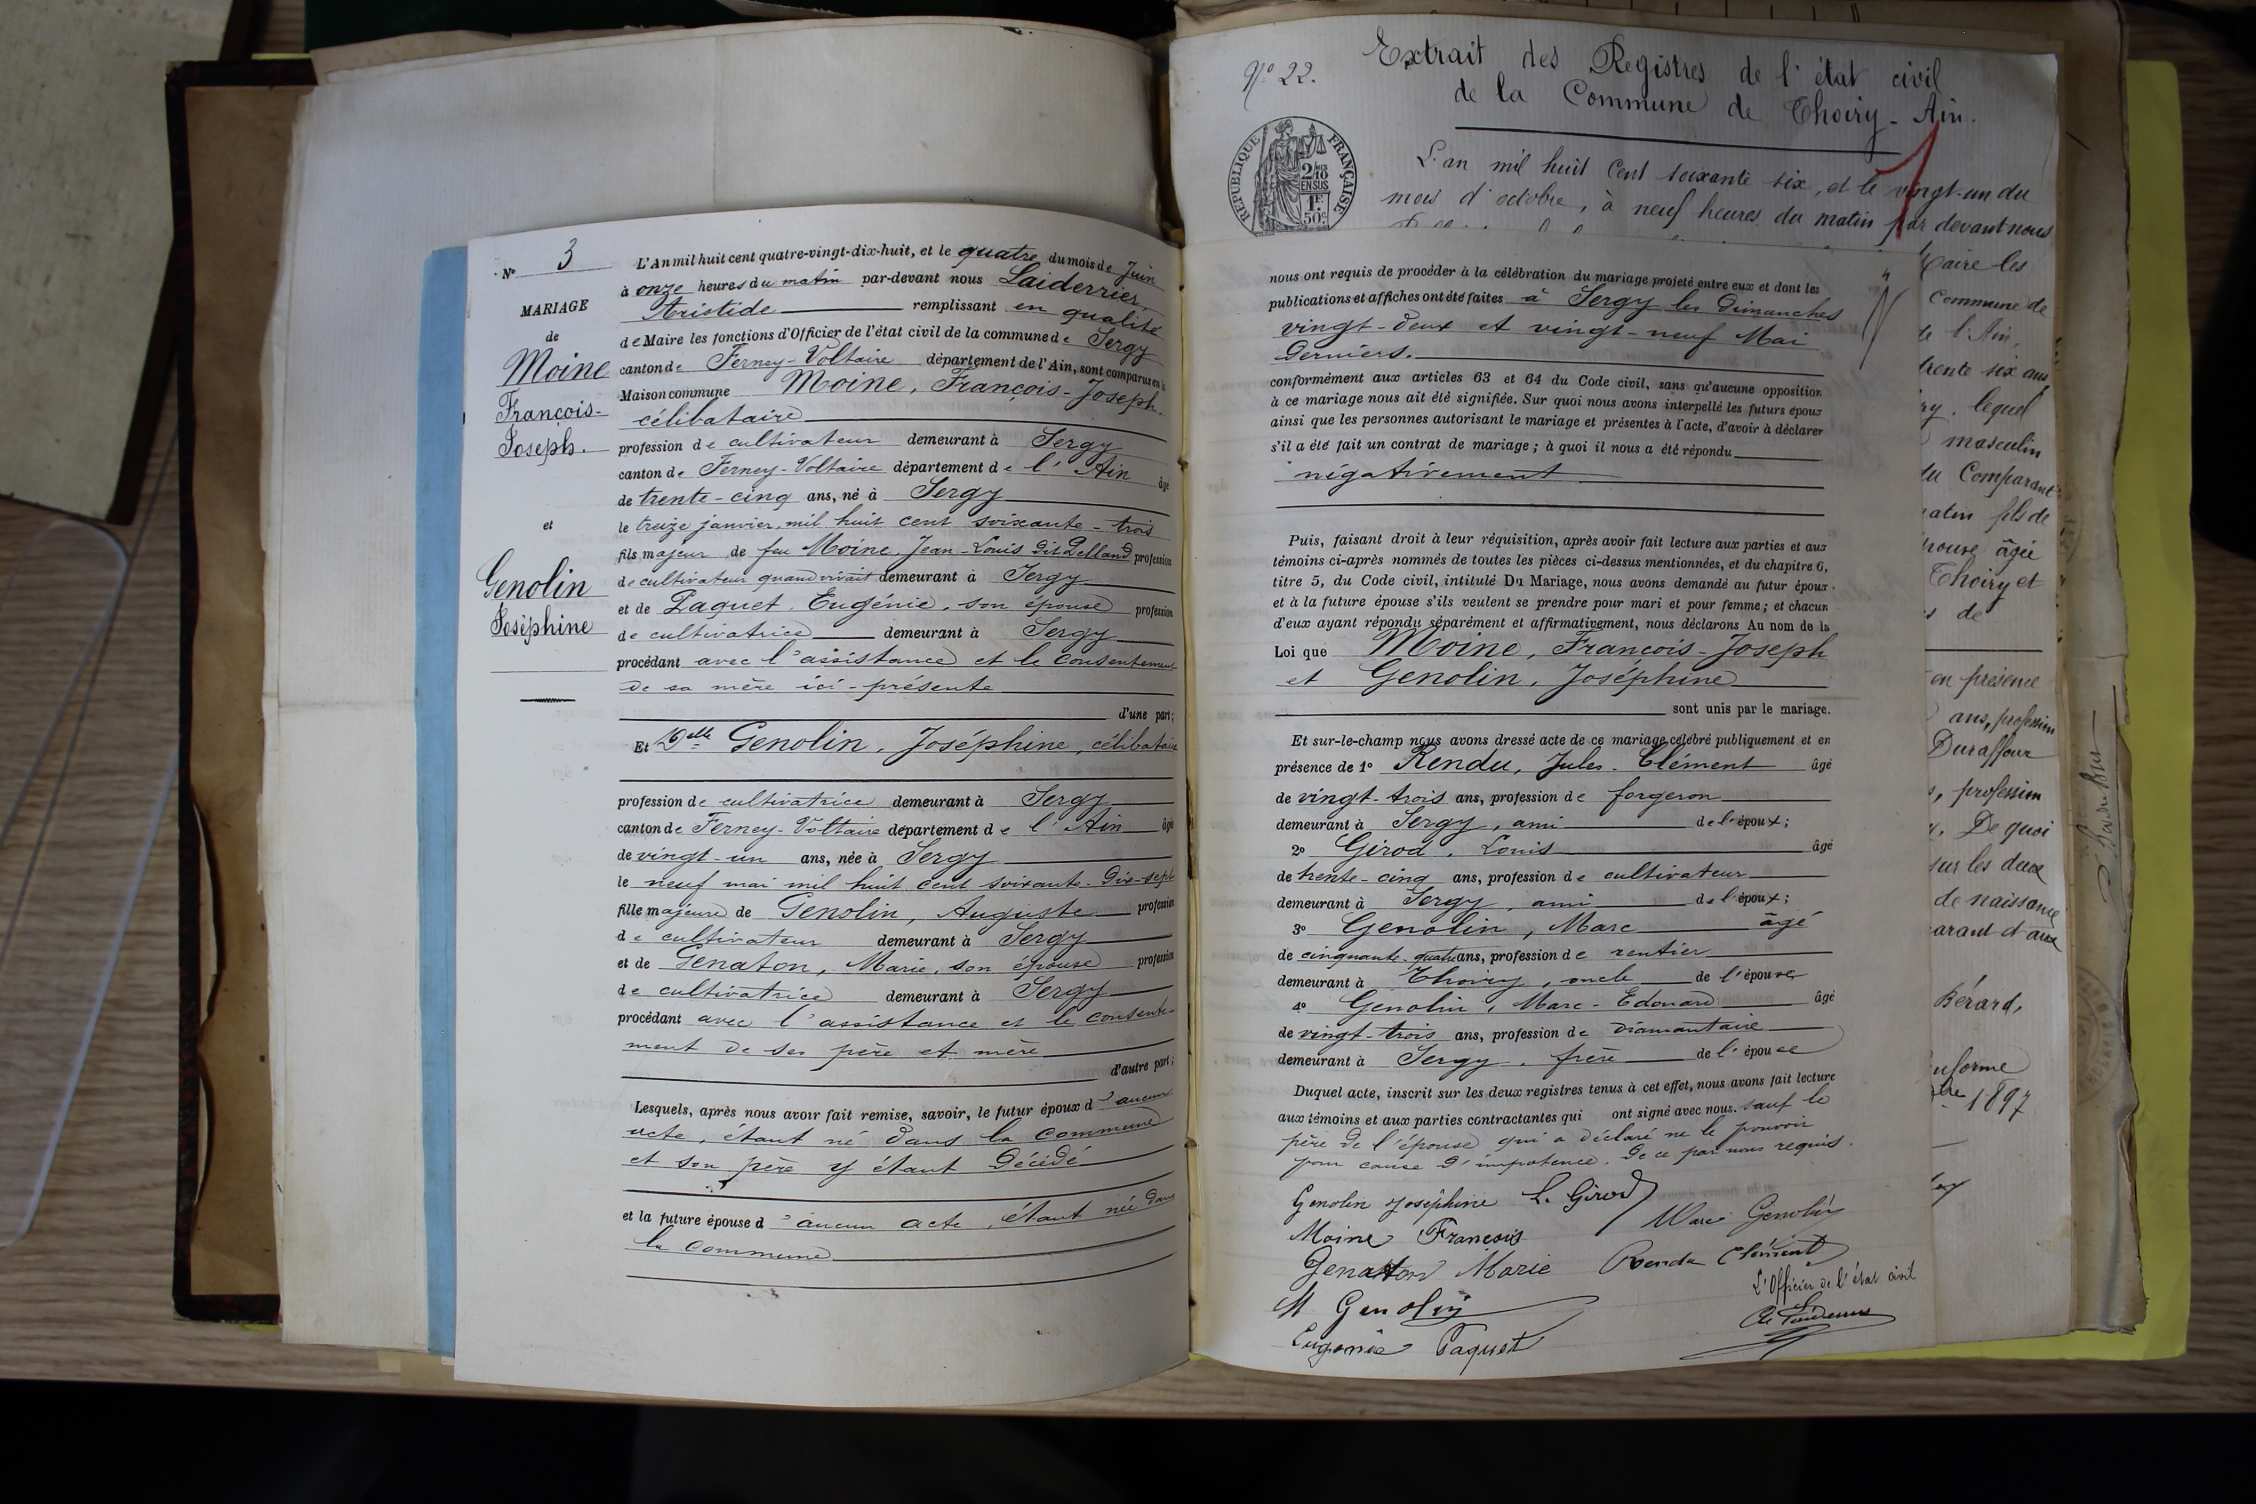 N° 3
MARIAGE
de
Moine
François-
Joseph.
et
Genolin
Joséphine
L'An mil huit cent quatre-vingt-dix-huit, et le quatre du mois de Juin
à onze heures du matin par-devant nous Laiderrier
Aristide remplissant en qualité
de Maire les fonctions d'Officier de l'état civil de la commune de Sergy
canton de Ferney-Voltaire département de l'Ain, sont comparus en la
Maison commune Moine, François-Joseph.
célibataire
profession de cultivateur demeurant à Sergy
canton de Ferney-Voltaire département de l'Ain âgé
de trente-cinq ans, né à Sergy
le treize janvier mil huit cent soixante-trois
fils majeur de feu Moine, Jean-Louis dit profession
de cultivateur quand vivait demeurant à Sergy
et de Paquet, Eugénie, son épouse profession
de cultivatrice demeurant à Sergy
procédant avec l'assistance et le consentement
de sa mère ici-présente
d'une part;
Et Delle Genolin, Joséphine, célibataire
profession de cultivatrice demeurant à Sergy
canton de Ferney-Voltaire département de l'Ain âgé
de vingt-un ans, née à Sergy
le neuf mai mil huit cent soixante-dix-sept
fille majeure de Genolin, Auguste profession
de cultivateur demeurant à Sergy
et de Genaton, Marie, son épouse profession
de cultivatrice demeurant à Sergy
procédant avec l'assistance et le consente-
ment de ses père et mère
d'autre part;
Lesquels, après nous avoir fait remise, savoir, le futur époux d'aucun
acte, étant né dans la commune
et son père y étant décédé
et la future épouse d'aucun acte, étant née dans
la commune
N° 22.
Extrait des Registres de l'état civil
de la Commune de Thoiry - Ain.
RÉPUBLIQUE FRANÇAISE
2/10 EN SUS
1F 50c
L'an mil huit Cent soixante six, et le vingt-un du
mois d'octobre, à neuf heures du matin par devant nous
nous ont requis de procéder à la célébration du mariage projeté entre eux et dont les
publications et affiches ont été faites à Sergy les Dimanches
vingt-deux et vingt-neuf Mai
Derniers.
conformément aux articles 63 et 64 du Code civil, sans qu'aucune opposition
à ce mariage nous ait été signifiée. Sur quoi nous avons interpellé les futurs époux
ainsi que les personnes autorisant le mariage et présentes à l'acte, d'avoir à déclarer
s'il a été fait un contrat de mariage; à quoi il nous a été répondu
négativement
Puis, faisant droit à leur réquisition, après avoir fait lecture aux parties et aux
témoins ci-après nommés de toutes les pièces ci-dessus mentionnées, et du chapitre 6,
titre 5, du Code civil, intitulé Du Mariage, nous avons demandé au futur époux
et à la future épouse s'ils veulent se prendre pour mari et pour femme; et chacun
d'eux ayant répondu séparément et affirmativement, nous déclarons Au nom de la
Loi que Moine, François-Joseph
et Genolin, Joséphine
sont unis par le mariage.
Et sur-le-champ nous avons dressé acte de ce mariage célébré publiquement et en
présence de 1° Rendu, Jules-Clément âgé
de vingt-trois ans, profession de forgeron
demeurant à Sergy, ami de l'époux;
2° Girod, Louis âgé
de trente-cinq ans, profession de cultivateur
demeurant à Sergy, ami de l'époux;
3° Genolin, Marc âgé
de cinquante-quatre ans, profession de rentier
demeurant à Thoiry, oncle de l'épouse
4° Genolin, Marc-Edouard âgé
de vingt-trois ans, profession de diamantaire
demeurant à Sergy, frère de l'épouse
Duquel acte, inscrit sur les deux registres tenus à cet effet, nous avons fait lecture
aux témoins et aux parties contractantes qui ont signé avec nous. sauf le
père de l'épouse qui a déclaré ne le pouvoir
pour cause d'impotence. De ce par nous requis.
Genolin Joséphine L. Girod
Moine François Marc Genolin
Genaton Marie Rendu Clément
L'Officier de l'état civil
M Genolin
Eugénie Paquet
Maire les
Commune de
de l'Ain,
trente six ans
lequel
masculin
du Comparant
matin fils de
épouse âgée
Thoiry et
de
en présence
ans, profession
Duraffour
profession
De quoi
sur les deux
de naissance
Bérard,
1897